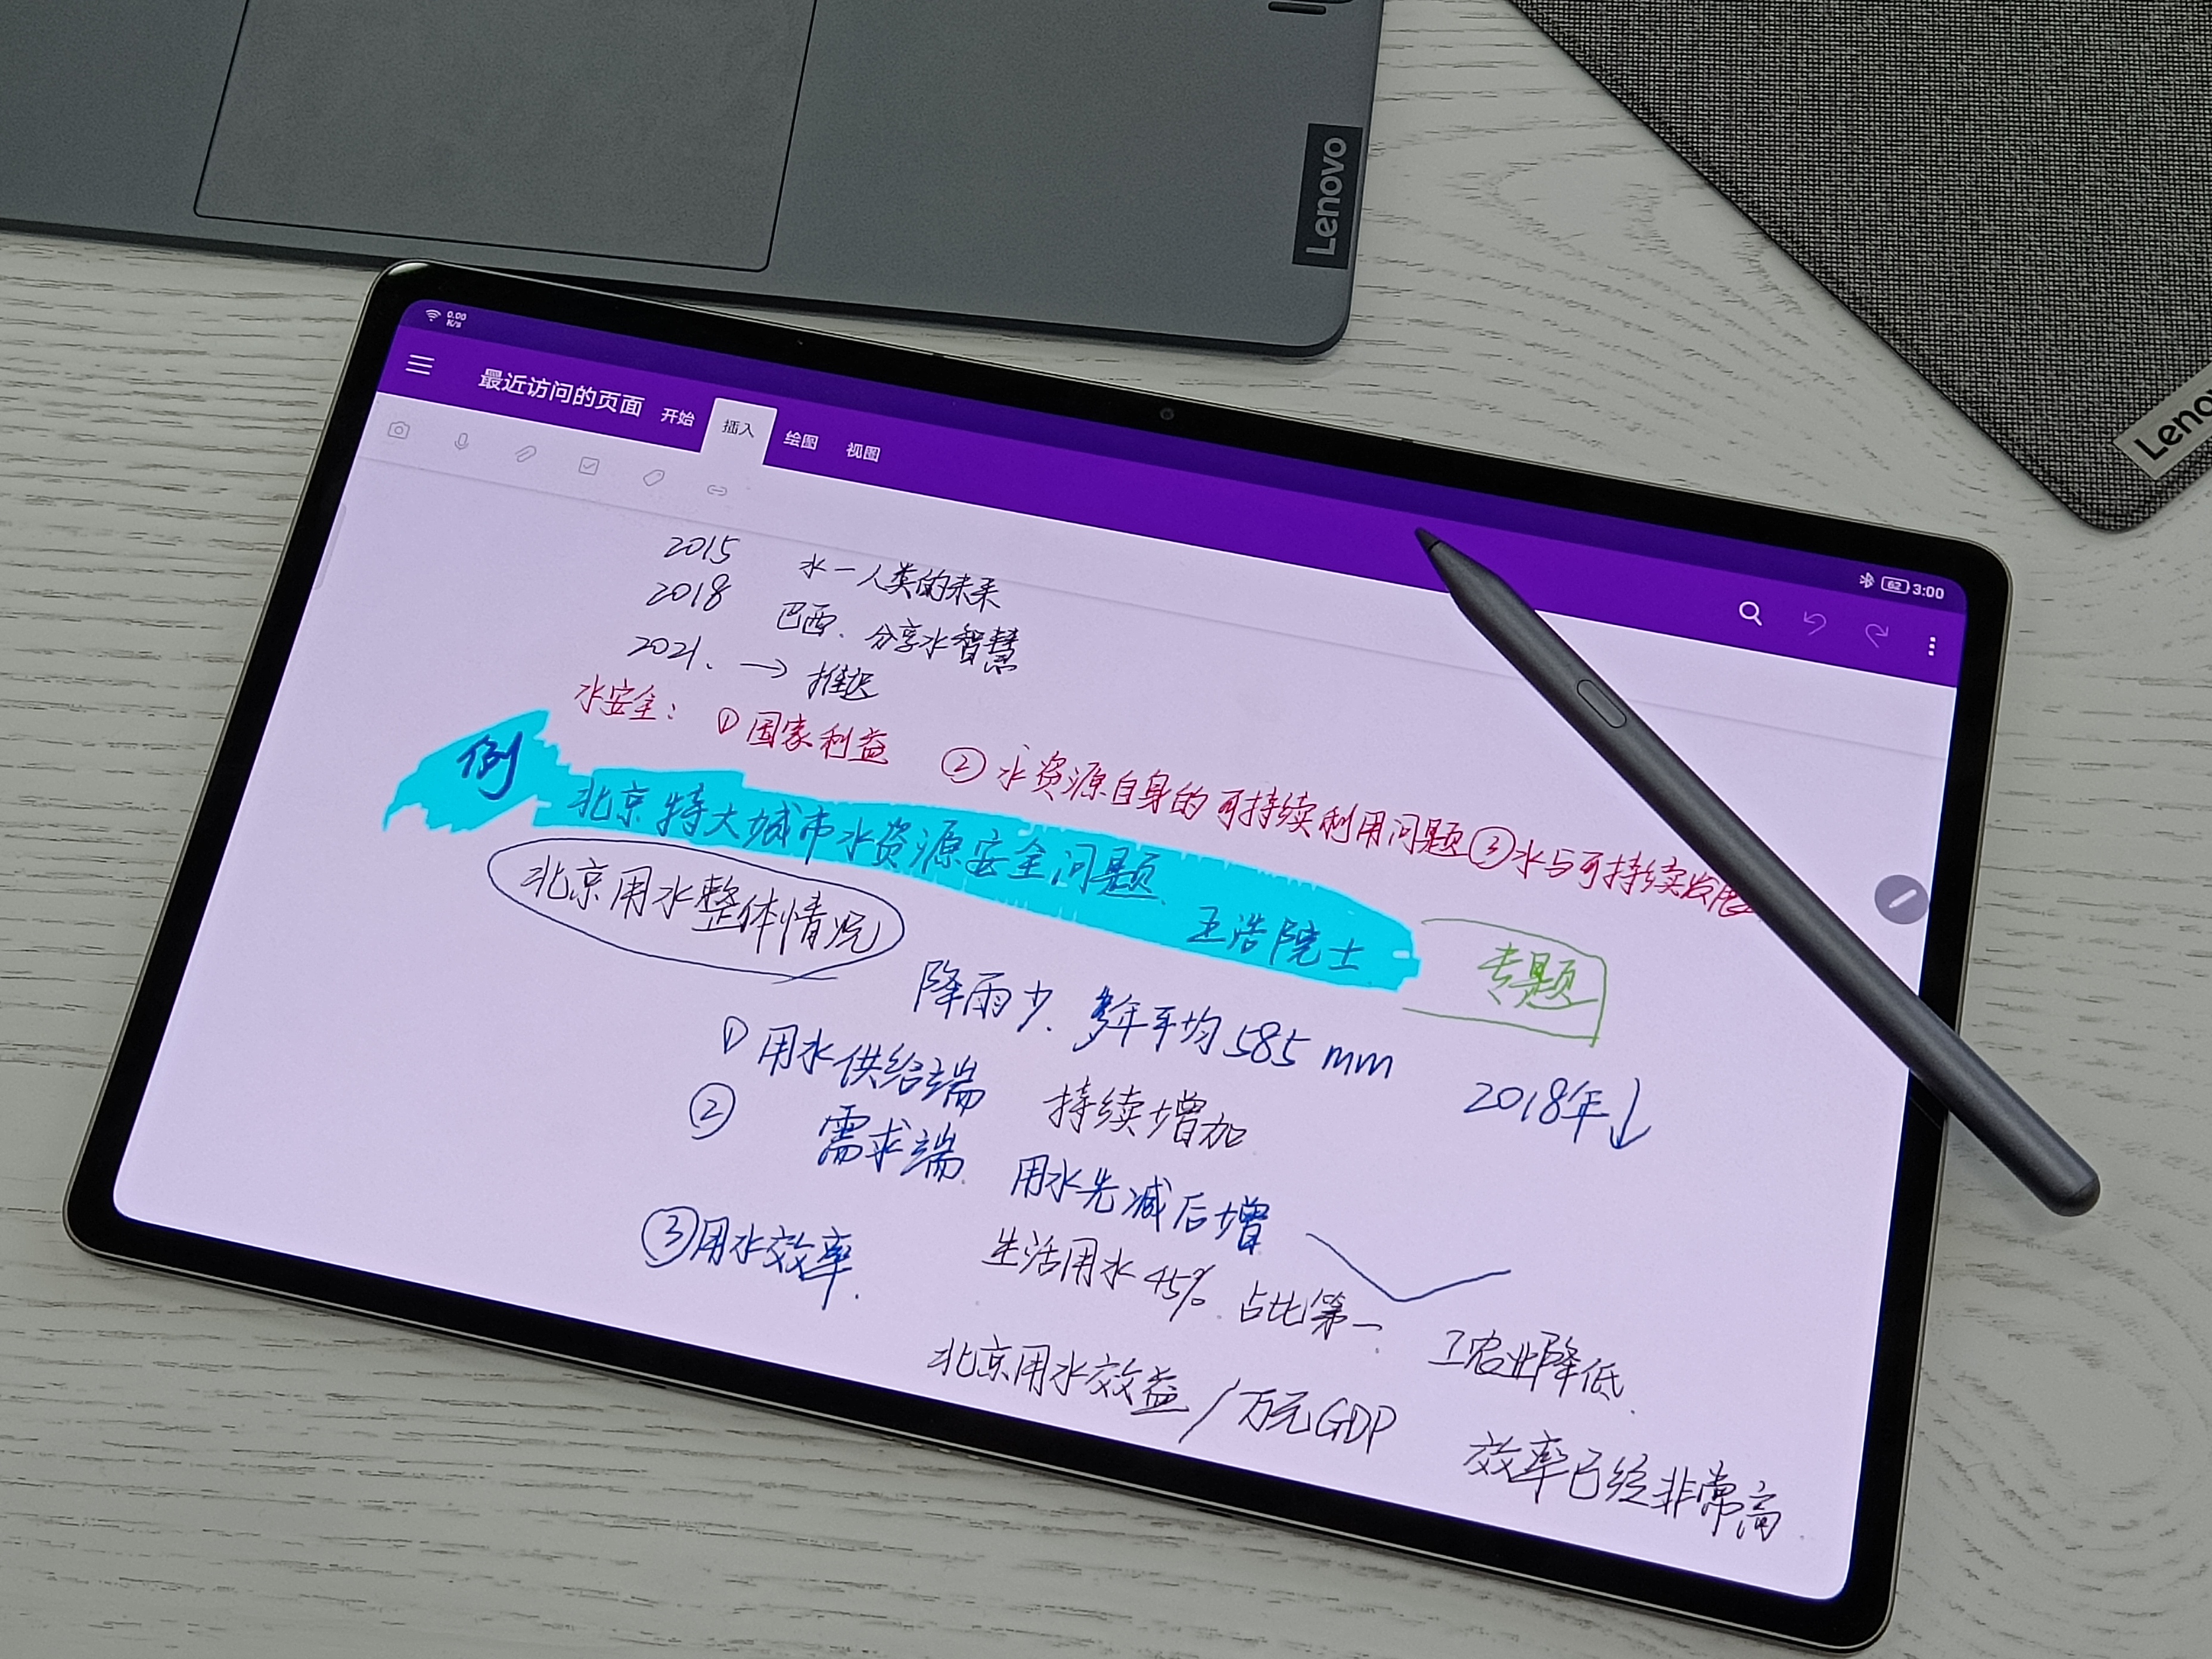 Lenovo
Leno
0.00
K/s
62 3:00
最近访问的页面 开始 插入 绘图 视图
2015 水一人类的未来
2018 巴西. 分享水智慧
2021. → 推迟
水安全: ① 国家利益 ② 水资源自身的可持续利用问题 ③ 水与可持续发展
例 北京特大城市水资源安全问题. 王浩院士 专题
北京用水整体情况
降雨少. 多年平均 585 mm 2018年↓
① 用水供给端 持续增加
② 需求端. 用水先减后增
生活用水 45%. 占比第一. 工农业降低.
③ 用水效率.
北京用水效益 / 万元GDP 效率已经非常高.